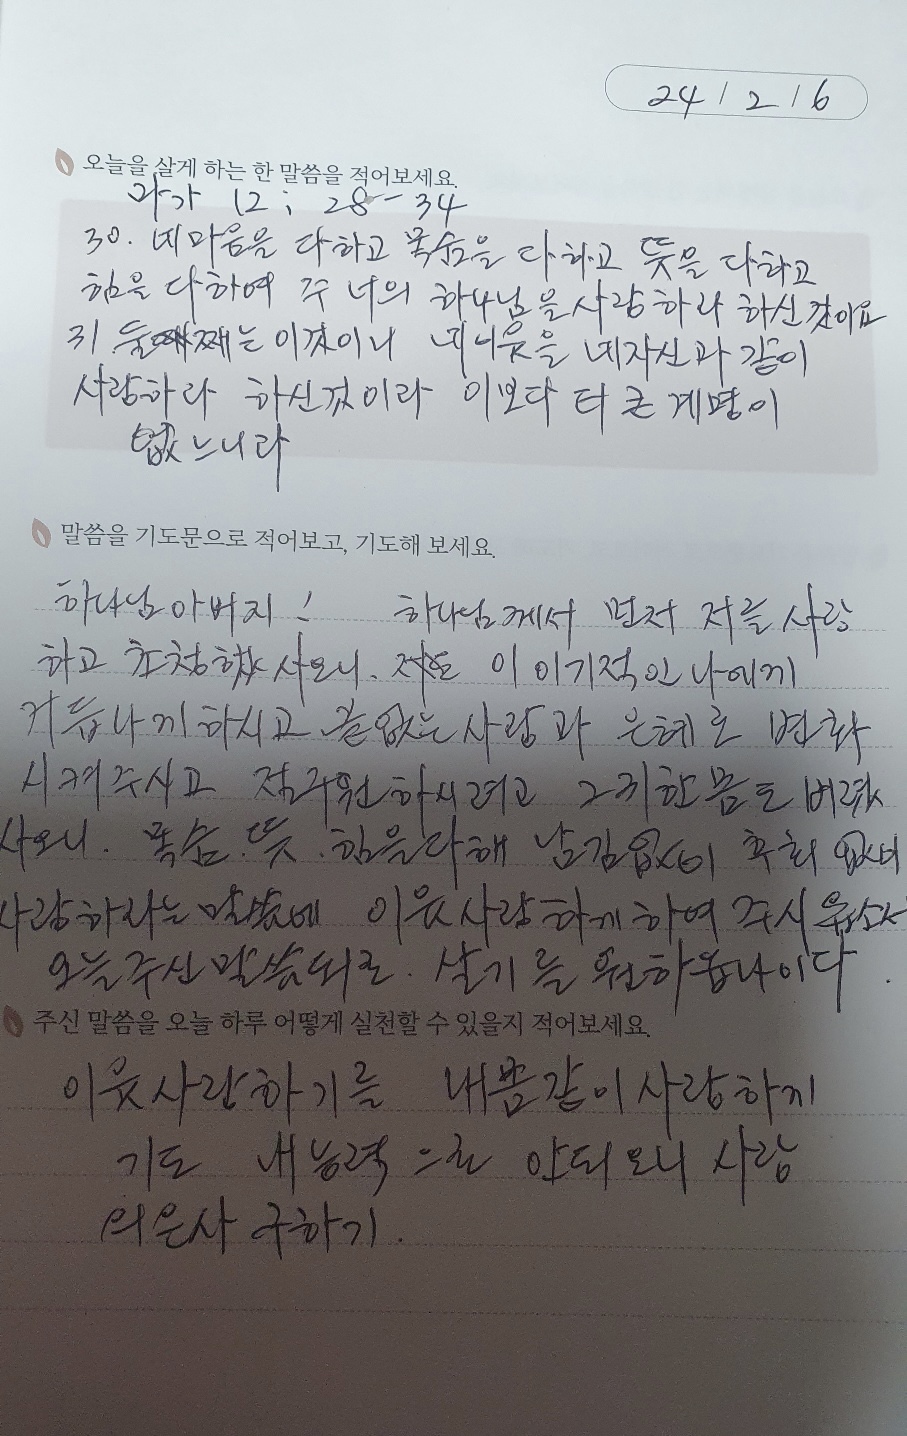 24 / 2 / 6
오늘을 살게 하는 한 말씀을 적어보세요.
마가 12 ; 28 - 34
30. 네 마음을 다하고 목숨을 다하고 뜻을 다하고
힘을 다하여 주 너의 하나님을 사랑하라 하신 것이요
31 둘째는 이것이니 네 이웃을 네 자신과 같이
사랑하라 하신 것이라 이보다 더 큰 계명이
없느니라
말씀을 기도문으로 적어보고, 기도해 보세요.
하나님 아버지 ! 하나님께서 먼저 저를 사랑
하고 사오니. 이 이기적인 나에게
거듭나게 하시고 끝없는 사랑과 은혜로 변화
시켜주시고 하시려고 귀한 몸도 버렸
사오니. 목숨. 뜻. 힘을 다해 남김없이 후회 없이
사랑하라는 말씀에 이웃사랑하게 하여 주시옵소서
오늘 주신 말씀되로. 살기를 원하옵나이다.
주신 말씀을 오늘 하루 어떻게 실천할 수 있을지 적어보세요.
이웃사랑하기를 내 몸 같이 사랑하게
기도 내 능력으로 안되오니 사랑
의 은사 구하기.